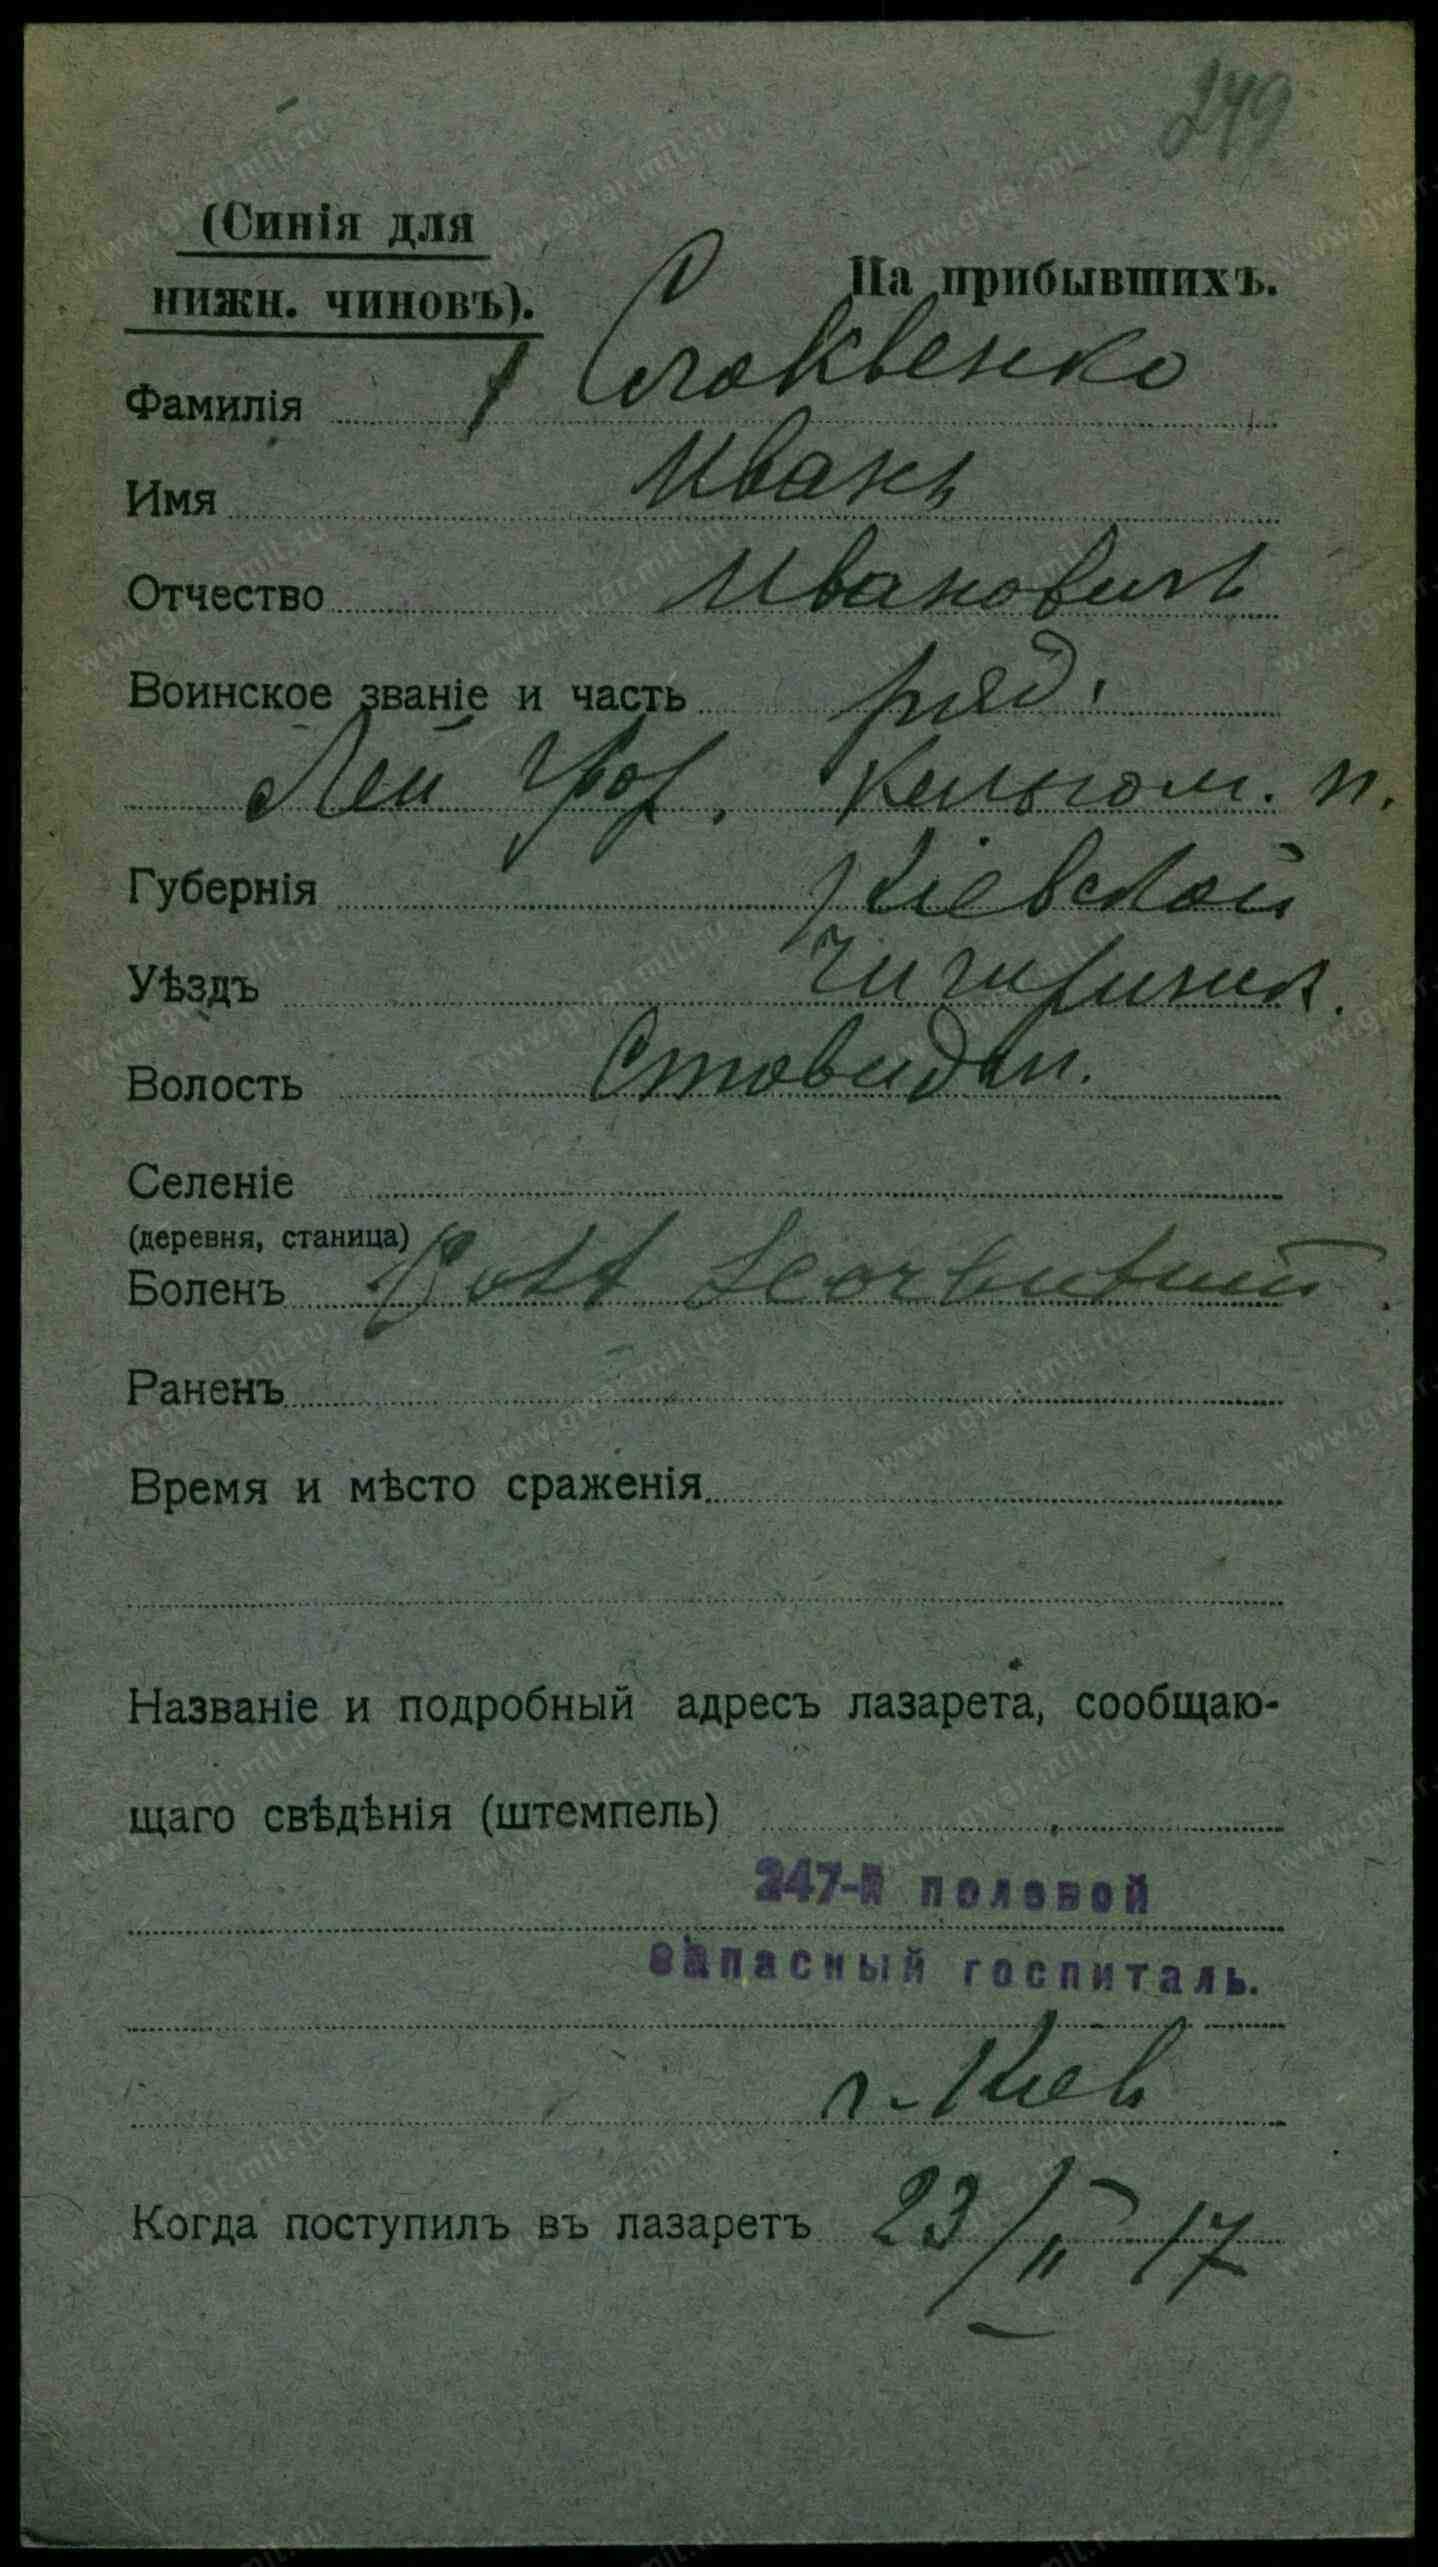 249
(Синія для
нижн. чиновъ).
На прибывшихъ.
Фамилія Слоквенко
Имя Иванъ
Отчество Ивановичъ
Воинское званіе и часть ряд.
Лей Гвор. Кельгом. п.
Губернія Кіевской
Уѣздъ Чигиринск.
Волость Стовидл.
Селеніе
(деревня, станица)
Боленъ
Раненъ
Время и мѣсто сраженія
Названіе и подробный адресъ лазарета, сообщаю-
щаго свѣдѣнія (штемпель)
247-й полевой
запасный госпиталь.
г. Киев
Когда поступилъ въ лазаретъ 23/II 17